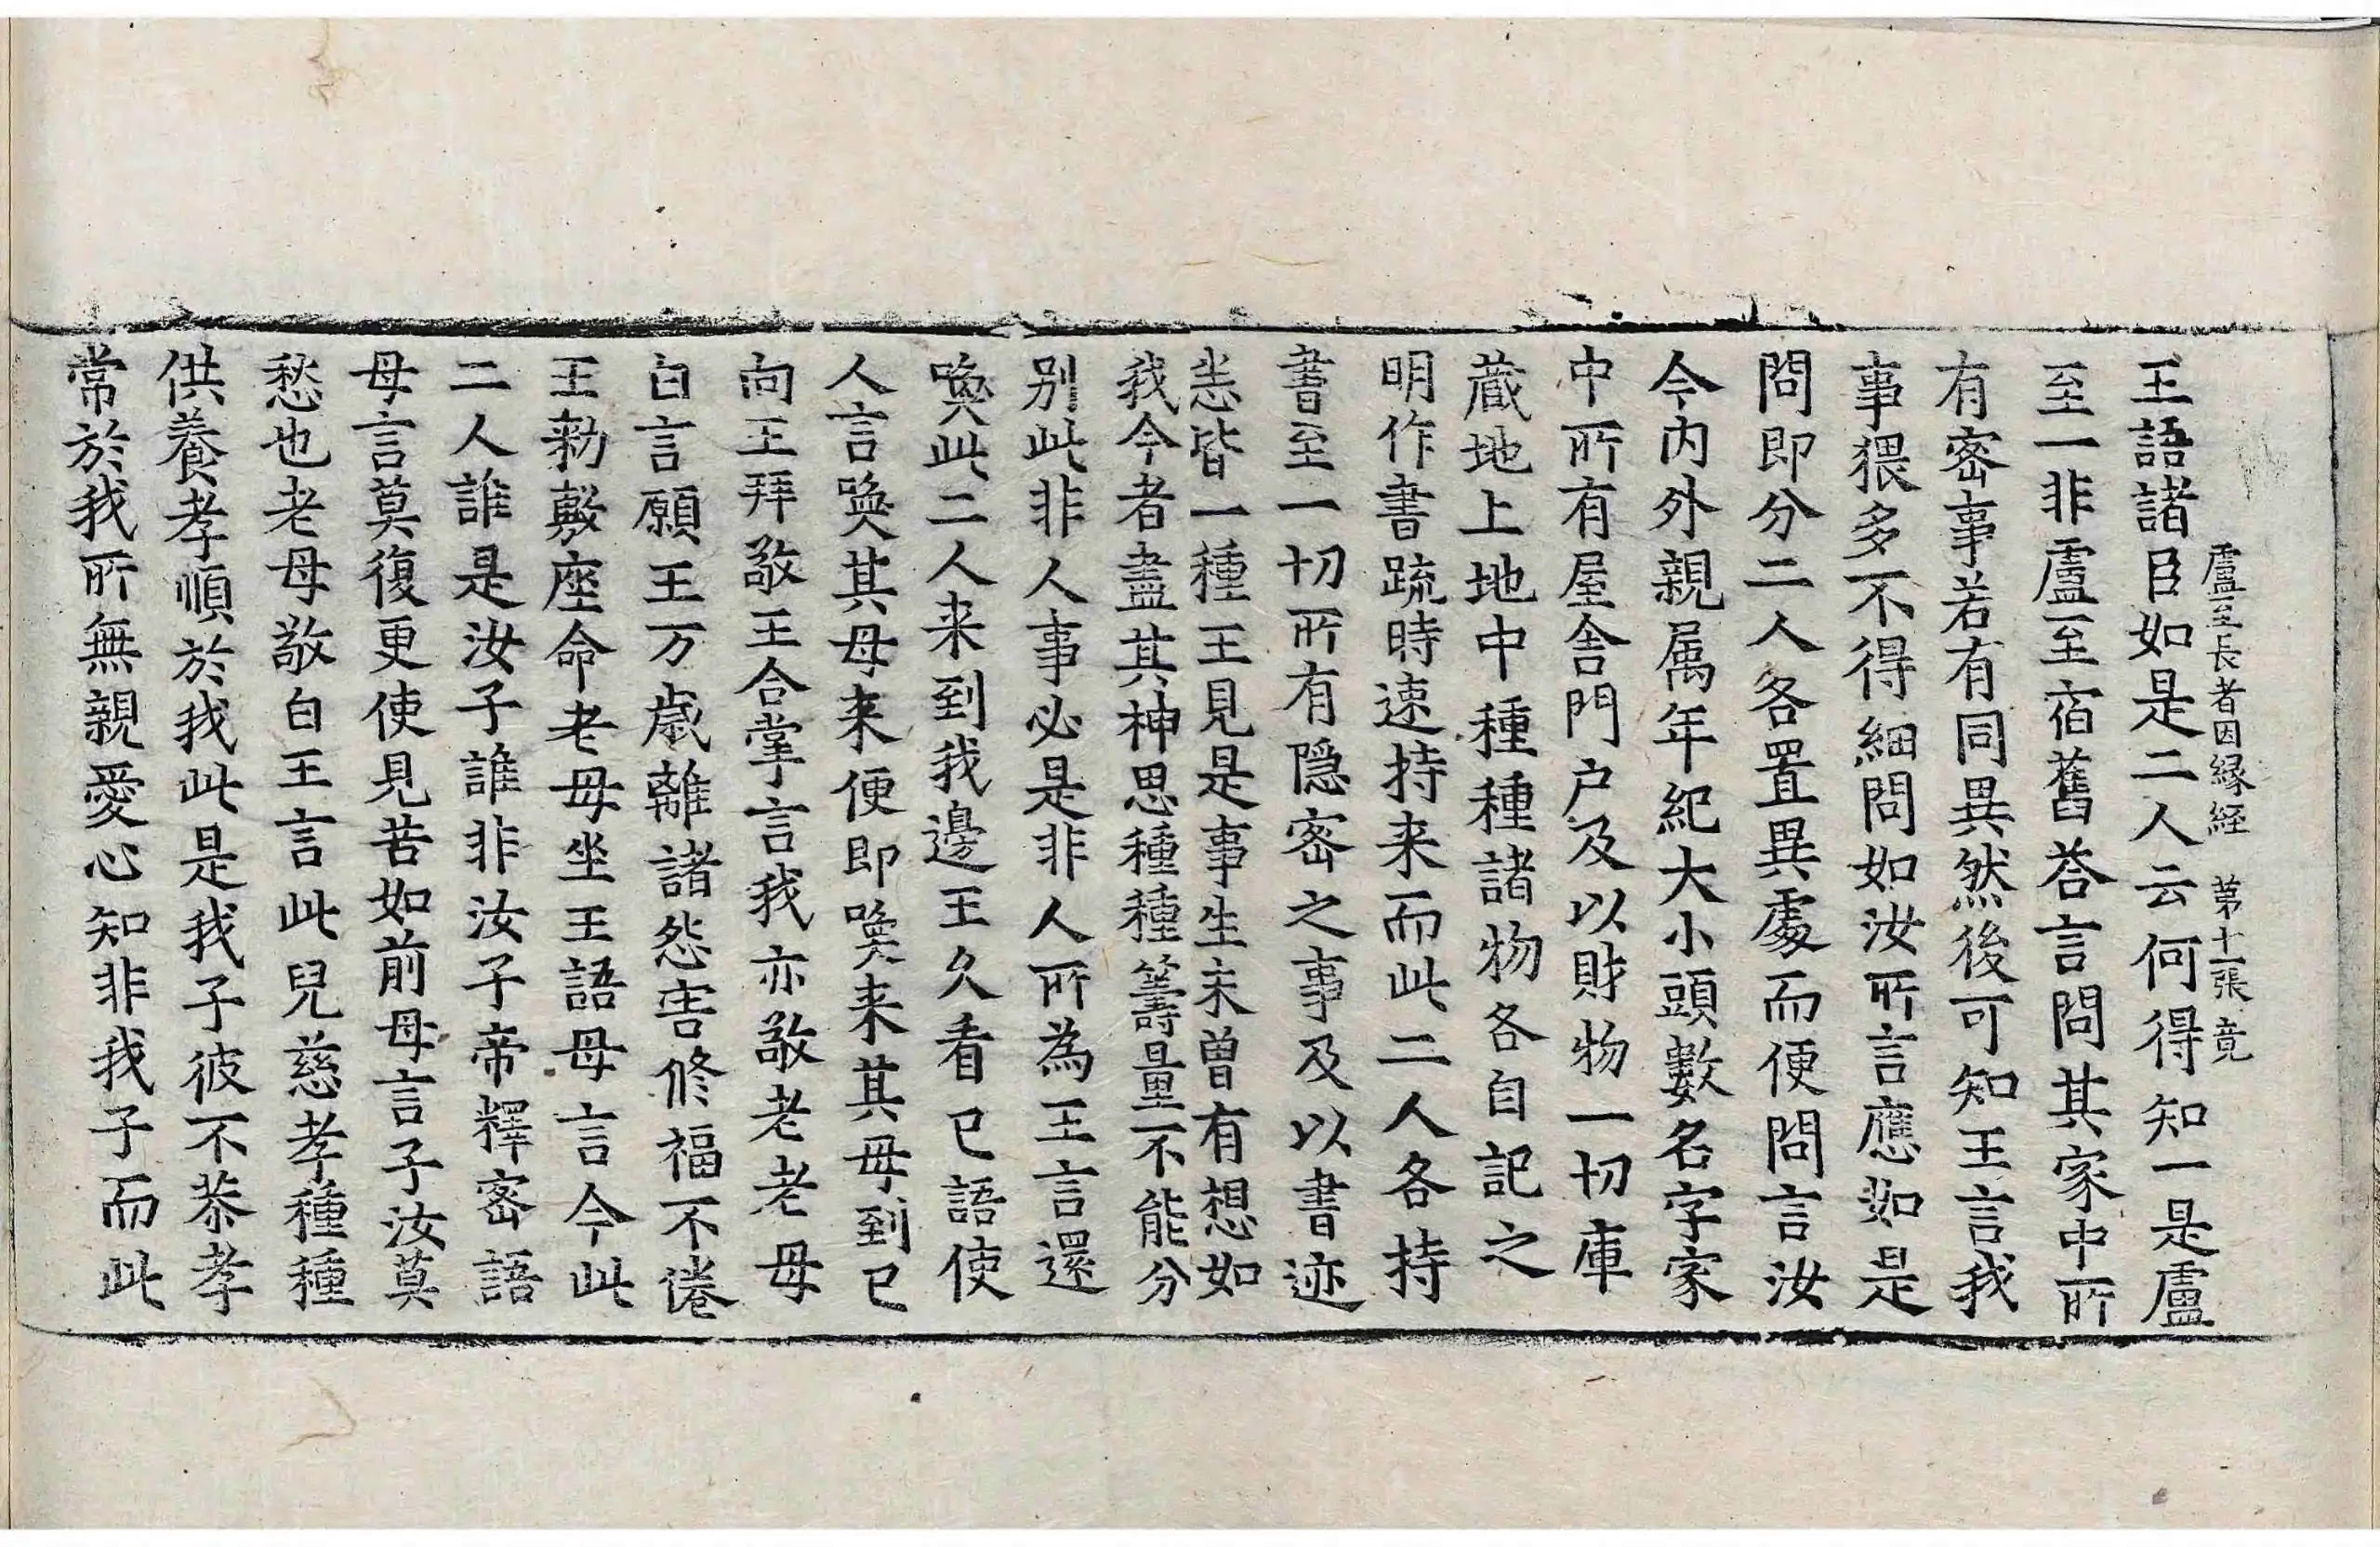 盧至長者因縁経 第十一張 竟
王語諸臣如是二人云何得知一是盧
至一非盧至宿舊荅言問其家中所
有密事若有同異然後可知王言我
事猥多不得細問如汝所言應如是
問即分二人各置異處而便問言汝
今内外親属年紀大小頭數名字家
中所有屋舎門户及以財物一切庫
蔵地上地中種種諸物各自記之
明作書疏時速持来而此二人各持
書至一切所有隠密之事及以書迹
悉皆一種王見是事生未曽有想如
我今者盡其神思種種籌量不能分
别此非人事必是非人所為王言還
喚此二人来到我邊王久看已語使
人言喚其母来便即喚来其母到已
向王拜敬王合掌言我亦敬老老母
白言願王万歳離諸怨害修福不倦
王勑敷座命老母坐王語母言今此
二人誰是汝子誰非汝子帝釋密語
母言莫復更使見苦如前母言子汝莫
愁也老母敬白王言此兒慈孝種種
供養孝順於我此是我子彼不恭孝
常於我所無親愛心知非我子而此